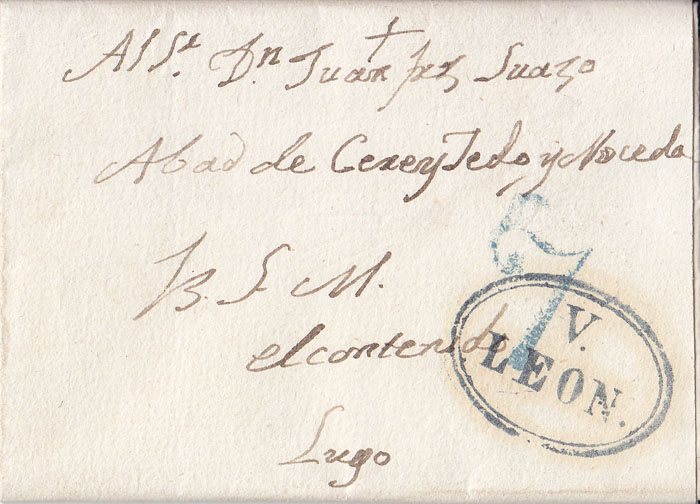 Al Sr. Dn Juan frz Suazo
Abad de Cereyjedo y Noceda
B. S. M.
el contenido
Lugo
7
V.
LEON.